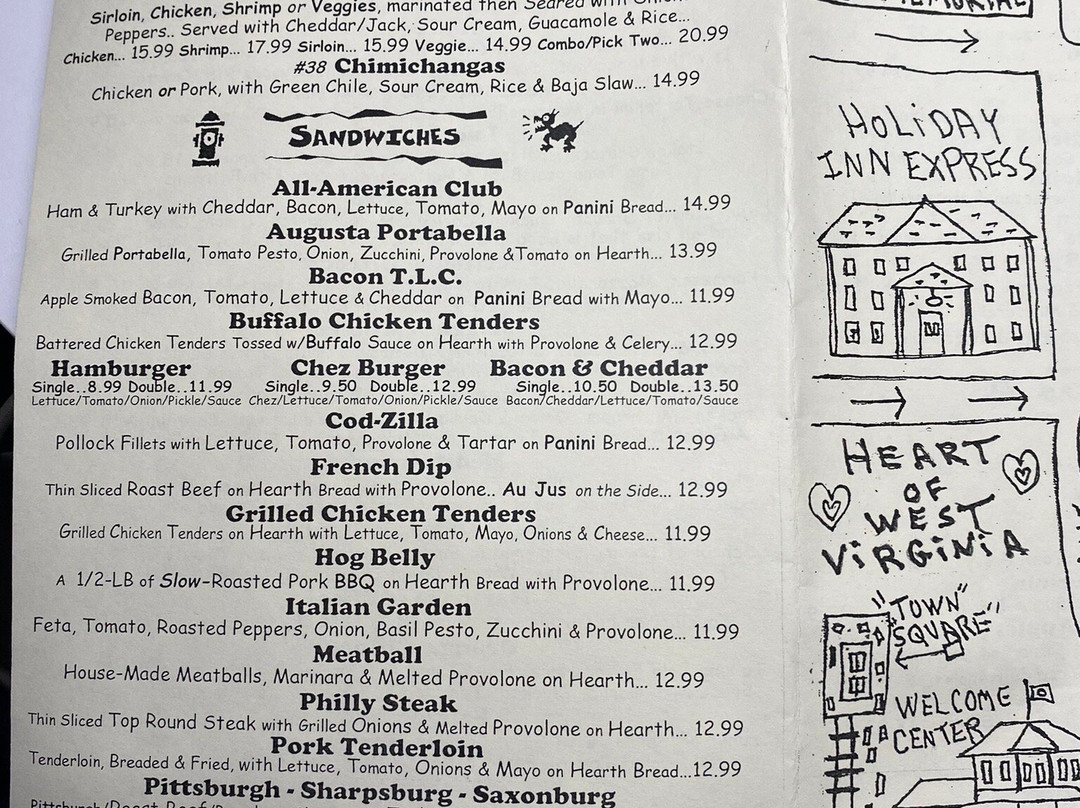 Sirloin, Chicken, Shrimp or Veggies, marinated then Seared with
Peppers.. Served with Cheddar/Jack, Sour Cream, Guacamole & Rice...
Chicken... 15.99 Shrimp... 17.99 Sirloin... 15.99 Veggie... 14.99 Combo/Pick Two... 20.99
#38 Chimichangas
Chicken or Pork, with Green Chile, Sour Cream, Rice & Baja Slaw... 14.99
SANDWICHES
All-American Club
Ham & Turkey with Cheddar, Bacon, Lettuce, Tomato, Mayo on Panini Bread... 14.99
Augusta Portabella
Grilled Portabella, Tomato Pesto, Onion, Zucchini, Provolone &Tomato on Hearth... 13.99
Bacon T.L.C.
Apple Smoked Bacon, Tomato, Lettuce & Cheddar on Panini Bread with Mayo... 11.99
Buffalo Chicken Tenders
Battered Chicken Tenders Tossed w/Buffalo Sauce on Hearth with Provolone & Celery... 12.99
Hamburger Chez Burger Bacon & Cheddar
Single..8.99 Double..11.99 Single..9.50 Double..12.99 Single..10.50 Double..13.50
Lettuce/Tomato/Onion/Pickle/Sauce Chez/Lettuce/Tomato/Onion/Pickle/Sauce Bacon/Cheddar/Lettuce/Tomato/Sauce
Cod-Zilla
Pollock Fillets with Lettuce, Tomato, Provolone & Tartar on Panini Bread... 12.99
French Dip
Thin Sliced Roast Beef on Hearth Bread with Provolone.. Au Jus on the Side... 12.99
Grilled Chicken Tenders
Grilled Chicken Tenders on Hearth with Lettuce, Tomato, Mayo, Onions & Cheese... 11.99
Hog Belly
A 1/2-LB of Slow-Roasted Pork BBQ on Hearth Bread with Provolone... 11.99
Italian Garden
Feta, Tomato, Roasted Peppers, Onion, Basil Pesto, Zucchini & Provolone... 11.99
Meatball
House-Made Meatballs, Marinara & Melted Provolone on Hearth... 12.99
Philly Steak
Thin Sliced Top Round Steak with Grilled Onions & Melted Provolone on Hearth... 12.99
Pork Tenderloin
Tenderloin, Breaded & Fried, with Lettuce, Tomato, Onions & Mayo on Hearth Bread...12.99
Pittsburgh - Sharpsburg - Saxonburg
HOLiDAY
INN EXPRESS
HEART
OF
WEST
ViRGiNiA
"TOWN
SQUARE"
WELCOME
CENTER